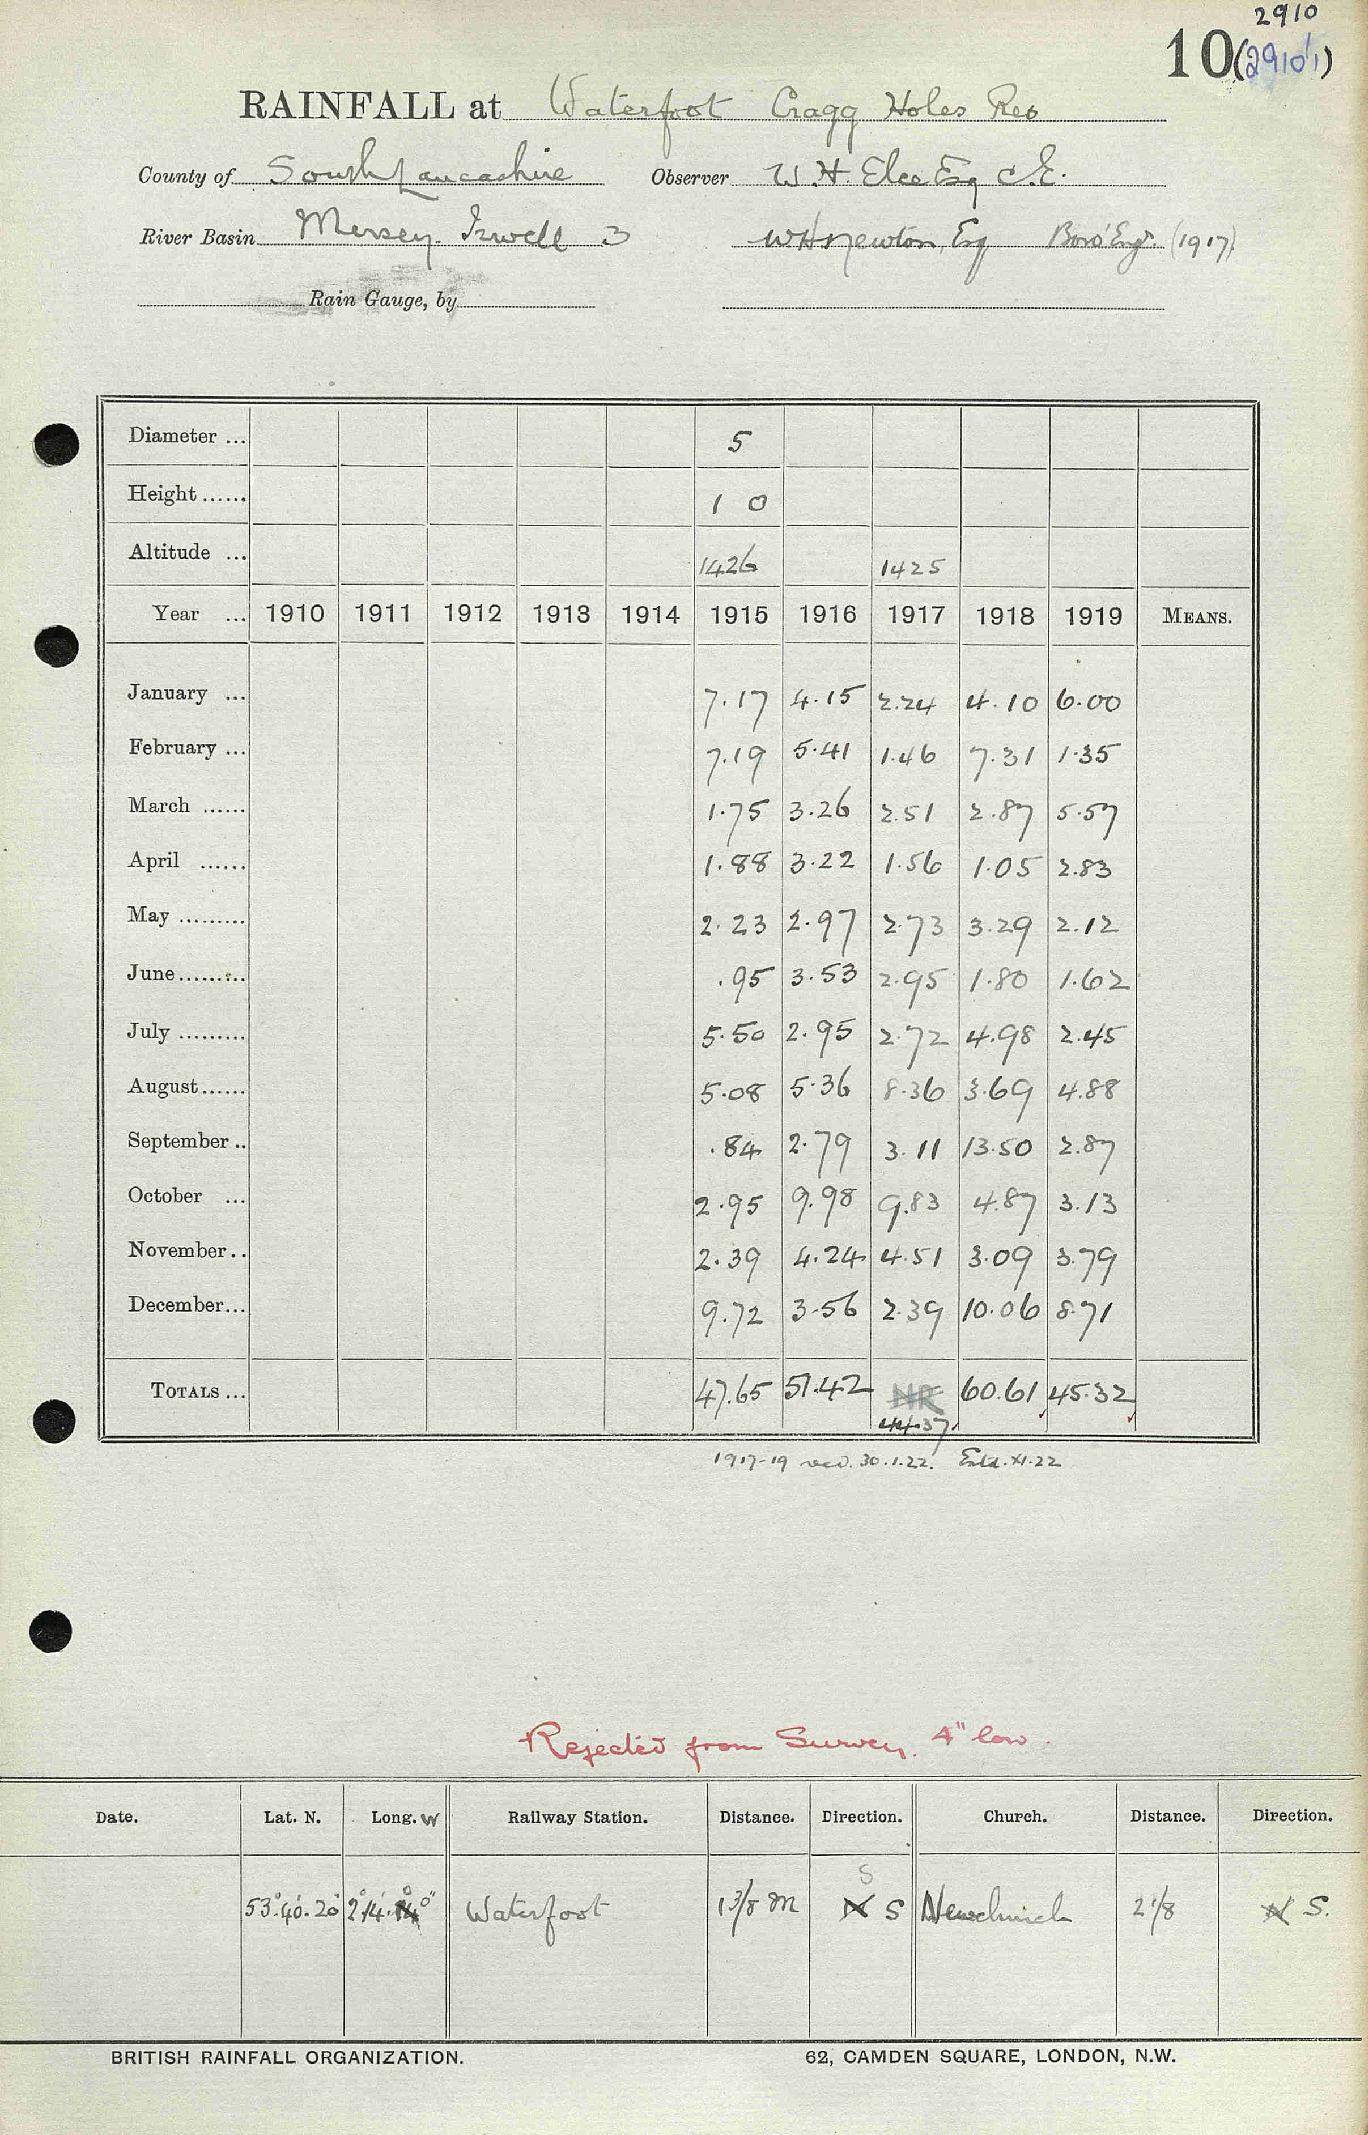 2910
10 (2910/1)
RAINFALL at Waterfoot Cragg Holes Res
County of South Lancashire Observer W. H. Elce Esq C.E.
River Basin Mersey. Irwell 3 W H Newton, Esq Boro' Engr. (1917)
Rain Gauge, by
Diameter ... 5
Height ...... 1 0
Altitude ... 1426 1425
Year ... 1910 1911 1912 1913 1914 1915 1916 1917 1918 1919 MEANS.
January ... 7.17 4.15 2.24 4.10 6.00
February ... 7.19 5.41 1.46 7.31 1.35
March ...... 1.75 3.26 2.51 2.87 5.57
April ...... 1.88 3.22 1.56 1.05 2.83
May ......... 2.23 2.97 2.73 3.29 2.12
June......... .95 3.53 2.95 1.80 1.62
July ......... 5.50 2.95 2.72 4.98 2.45
August...... 5.08 5.36 8.36 3.69 4.88
September .. .84 2.79 3.11 13.50 2.87
October ... 2.95 9.98 9.83 4.87 3.13
November.. 2.39 4.24 4.51 3.09 3.79
December... 9.72 3.56 2.39 10.06 8.71
TOTALS ... 47.65 51.42 NR 60.61 45.32
44.37
1917-19 recd. 30.1.22. Entd. XI.22
Rejected from Survey. 4" low.
Date. Lat. N. Long. W Railway Station. Distance. Direction. Church. Distance. Direction.
S
53°.40'.20" 2°.14'. 0" Waterfoot 1 3/8 m N S Newchurch 2 1/8 N S.
BRITISH RAINFALL ORGANIZATION. 62, CAMDEN SQUARE, LONDON, N.W.